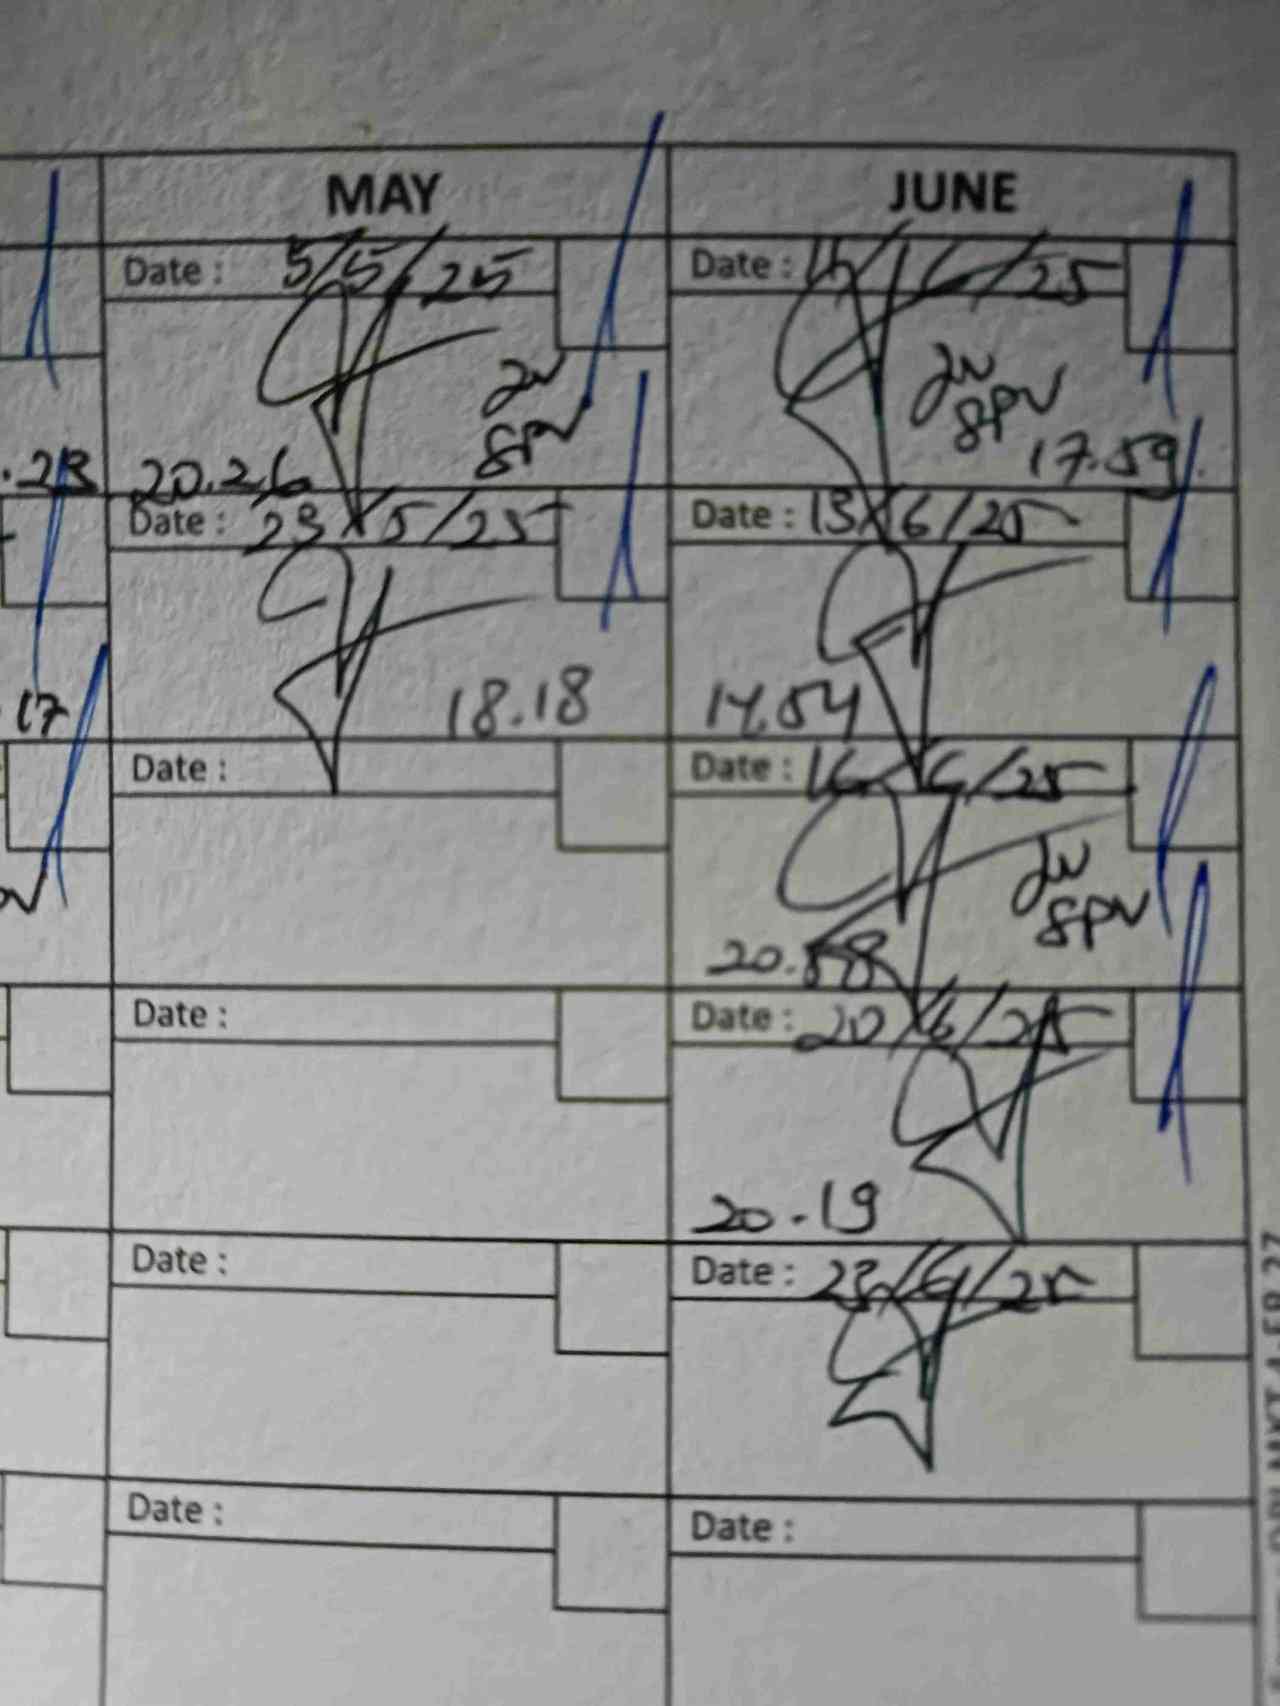 MAY
JUNE
Date : 5/5/25
Date : 11/6/25
JW
SPV
JW
SPV
.23
20.26
17.59
Date : 23/5/25
Date : 13/6/25
17
18.18
14.54
Date :
Date : 16/6/25
JW
SPV
20.58
Date :
Date : 20/6/25
20.19
Date :
Date : 23/6/25
Date :
Date :